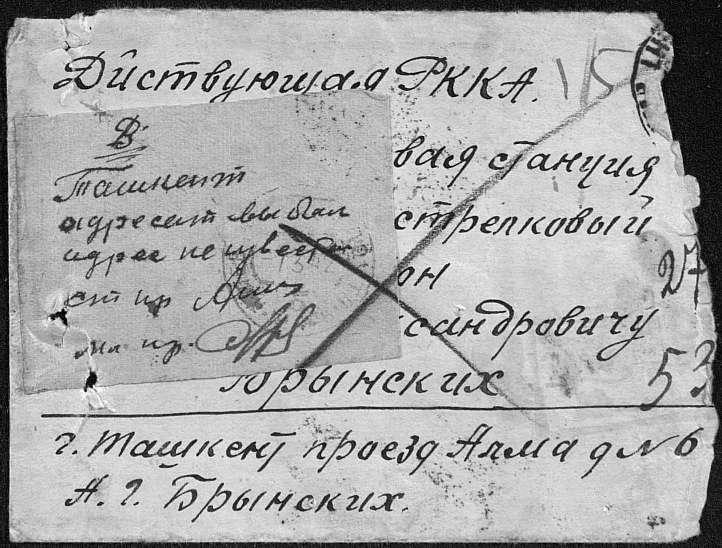 Дйствующая РККА.
115
вая станция
стрелковый
он
27
сандровичу
Брынских
53
В
Ташкент
адресат выбыл
адрес не извест
г. Ташкент проезд Алма д № 6
А. Г. Брынских.